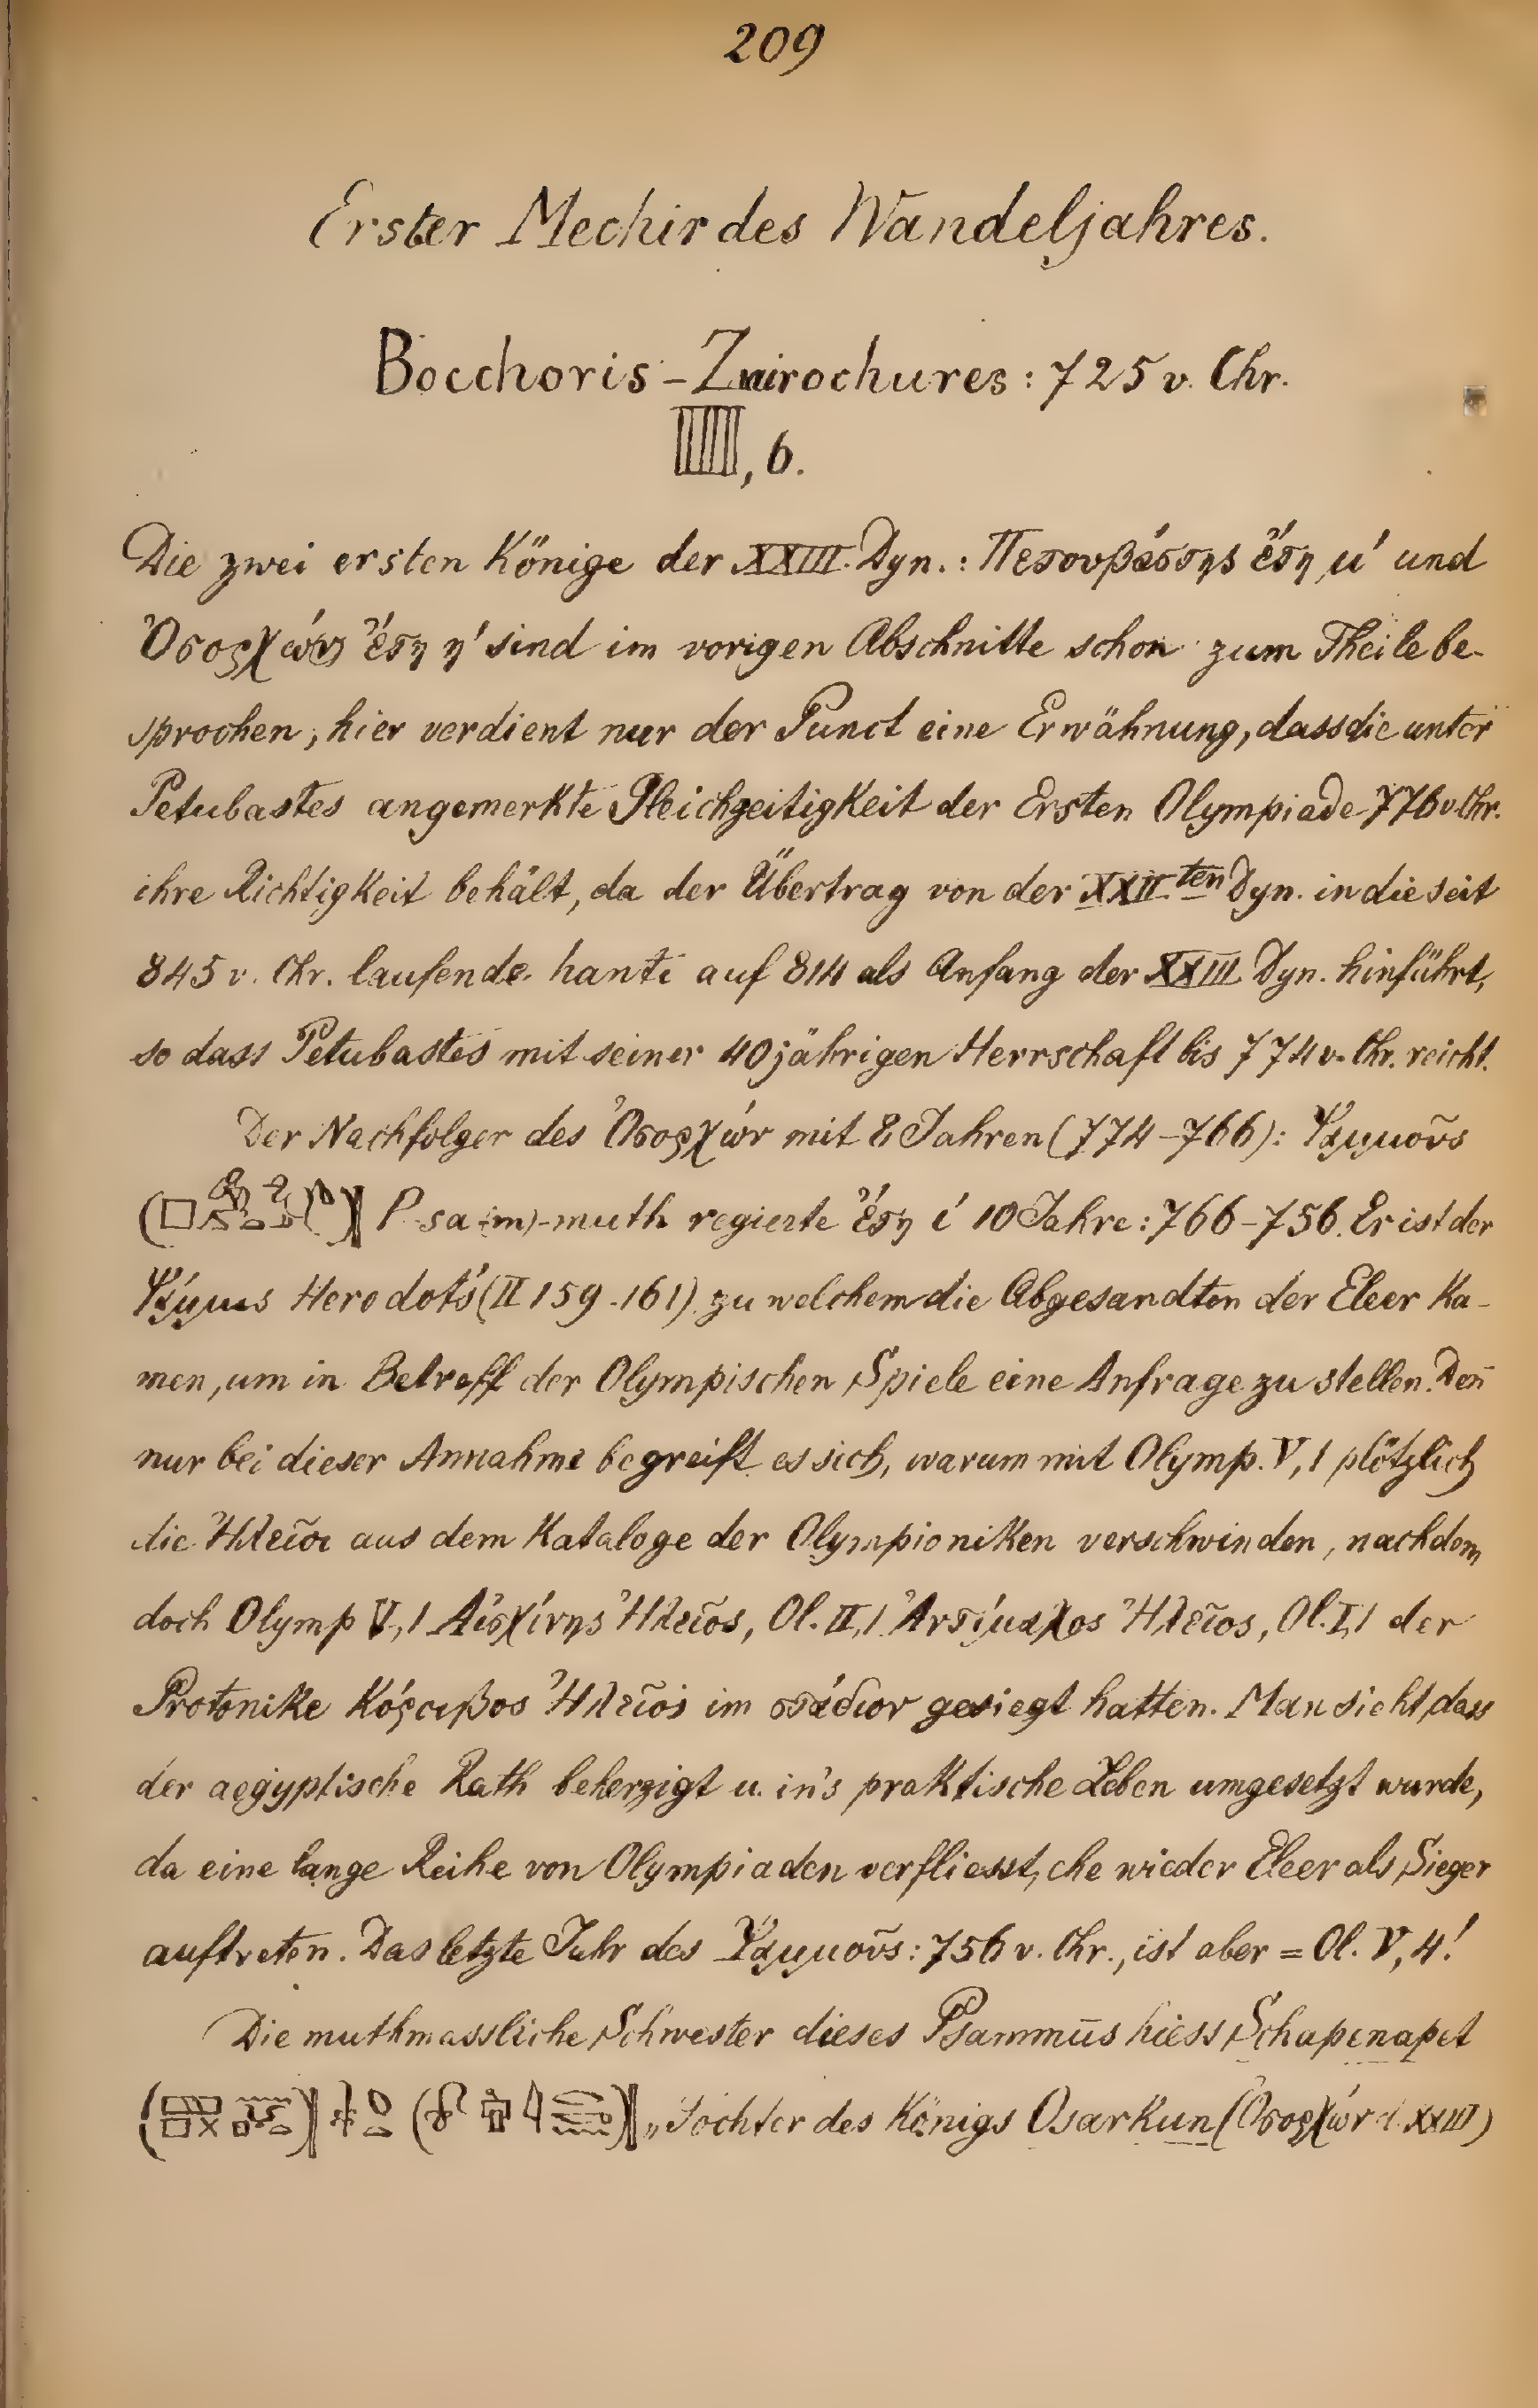 209
Erster Mechir des Wandeljahres.
Bocchoris-Znirochures: 725 v. Chr.
, 6.
Die zwei ersten Könige der XXIII. Dyn.: Πετουβάστης ἔτη μ' und
Ὀσορχών ἔτη η' sind im vorigen Abschnitte schon zum Theile be-
sprochen; hier verdient nur der Punct eine Erwähnung, dass die unter
Petubastes angemerkte Gleichzeitigkeit der Ersten Olympiade 776 v. Chr.
ihre Richtigkeit behält, da der Übertrag von der XXII.ten Dyn. in die seit
845 v. Chr. laufende hanti auf 814 als Anfang der XXIII Dyn. hinführt,
so dass Petubastes mit seiner 40jährigen Herrschaft bis 774 v. Chr. reicht.
Der Nachfolger des Ὀσορχών mit 8 Jahren (774-766): Ψαμμοῦς
P-sa(m)-muth regierte ἔτη ί 10 Jahre: 766-756. Er ist der
Ψάμμις Herodots (II 159-161) zu welchem die Abgesandten der Eleer ka-
men, um in Betreff der Olympischen Spiele eine Anfrage zu stellen. Deñ
nur bei dieser Annahme begreift es sich, warum mit Olymp. V, 1 plötzlich
die Ἠλεῖοι aus dem Kataloge der Olympioniken verschwinden, nachdem
doch Olymp V, 1 Αἰσχίνης Ἠλεῖος, Ol. II, 1 Ἀντίμαχος Ἠλεῖος, Ol. I, 1 der
Protonike Κόροιβος Ἠλεῖος im στάδιον gesiegt hatten. Man sieht, dass
der aegyptische Rath beherzigt u. in's praktische Leben umgesetzt wurde,
da eine lange Reihe von Olympiaden verfliesst, ehe wieder Eleer als Sieger
auftreten. Das letzte Jahr des Ψαμμοῦς: 756 v. Chr., ist aber = Ol. V, 4!
Die muthmassliche Schwester dieses Psammūs hiess Schapenapet
„Tochter des Königs Osarkun (Ὀσορχών d. XXIII)